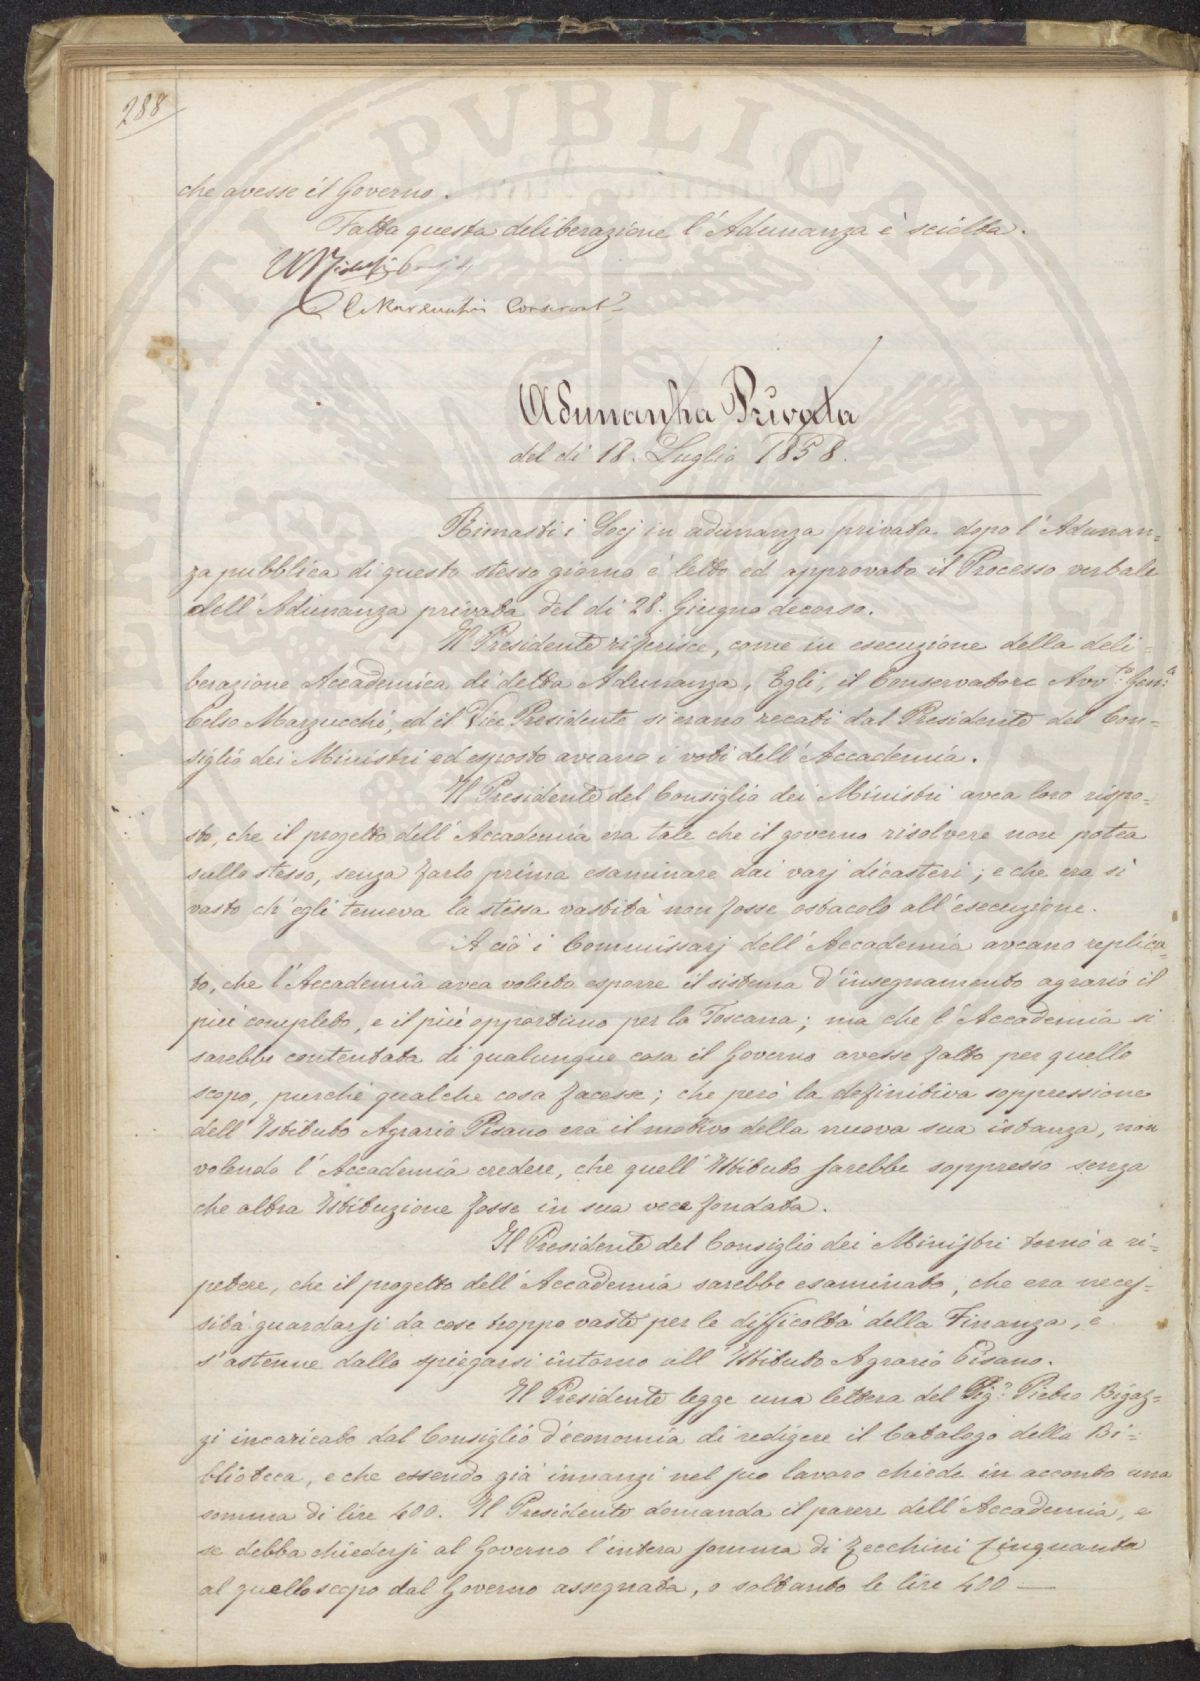 288
che avesse il Governo.
Fatta questa deliberazione l'Adunanza è sciolta.
C Marzucchi Conservat.e
Adunanza Privata
del dì 18. Luglio 1858.
Rimasti i Socj in adunanza privata dopo l'Adunan=
za pubblica di questo stesso giorno è letto ed approvato il Processo verbale
dell'Adunanza privata del dì 28. Giugno decorso.
Il Presidente riferisce, come in esecuzione della deli=
berazione Accademica di detta Adunanza, Egli, il Conservatore Avv.to Gen.e
Celso Marzucchi, ed il Vice Presidente si erano recati dal Presidente del Con=
siglio dei Ministri ed esposto aveano i voti dell'Accademia.
Il Presidente del Consiglio dei Ministri avea loro rispo=
sto, che il progetto dell'Accademia era tale che il governo risolvere non potea
sullo stesso, senza farlo prima esaminare dai varj dicasteri; e che era sì
vasto ch'egli temeva la stessa vastità non fosse ostacolo all'esecuzione.
A ciò i Commissarj dell'Accademia aveano replica=
to, che l'Accademia avea voluto esporre il sistema d'insegnamento agrario il
più completo, e il più opportuno per la Toscana; ma che l'Accademia si
sarebbe contentata di qualunque cosa il Governo avesse fatto per quello
scopo, purchè qualche cosa facesse; che però la definitiva soppressione
dell'Istituto Agrario Pisano era il motivo della nuova sua istanza, non
volendo l'Accademia credere, che quell'Istituto sarebbe soppresso senza
che altra Istituzione fosse in sua vece fondata.
Il Presidente del Consiglio dei Ministri tornò a ri=
petere, che il progetto dell'Accademia sarebbe esaminato, che era neces=
sità guardarsi da cose troppo vaste per le difficoltà della Finanza, e
s'astenne dallo spiegarsi intorno all'Istituto Agrario Pisano.
Il Presidente legge una lettera del Sig.r Pietro Bigaz=
zi incaricato dal Consiglio d'economia di redigere il Catalogo della Bi=
blioteca, e che essendo già innanzi nel suo lavoro chiede in acconto una
somma di lire 400. Il Presidente domanda il parere dell'Accademia, e
se debba chiedersi al Governo l'intera somma di Zecchini Cinquanta
al quello scopo dal Governo assegnata, o soltanto le lire 400 —
PUBLICAE